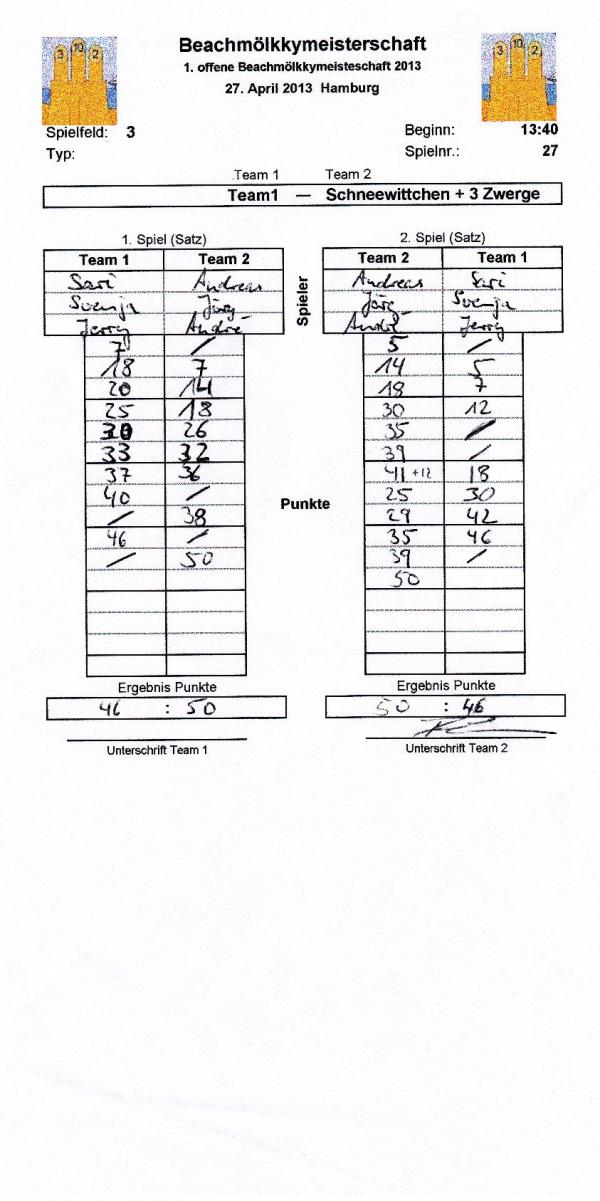 3 10 2
Beachmölkkymeisterschaft
3 10 2
1. offene Beachmölkkymeisteschaft 2013
27. April 2013 Hamburg
Spielfeld: 3
Beginn: 13:40
Typ:
Spielnr.: 27
Team 1 Team 2
Team1 — Schneewittchen + 3 Zwerge
1. Spiel (Satz)
Team 1 Team 2
Sari Andreas
Svenja Jörg
Jerry André
7 /
18 7
20 14
25 18
30 26
33 32
37 36
40 /
/ 38
46 /
/ 50
Ergebnis Punkte
46 : 50
Unterschrift Team 1
Spieler
Punkte
2. Spiel (Satz)
Team 2 Team 1
Andreas Sari
Jörg Svenja
André Jerry
5 /
14 5
18 7
30 12
35 /
39 /
41 +12 18
25 30
29 42
35 46
39 /
50
Ergebnis Punkte
50 : 46
Unterschrift Team 2